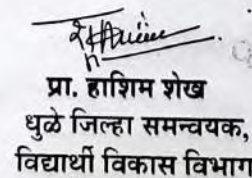 प्रा. हाशिम शेख
धुळे जिल्हा समन्वयक,
विद्यार्थी विकास विभाग